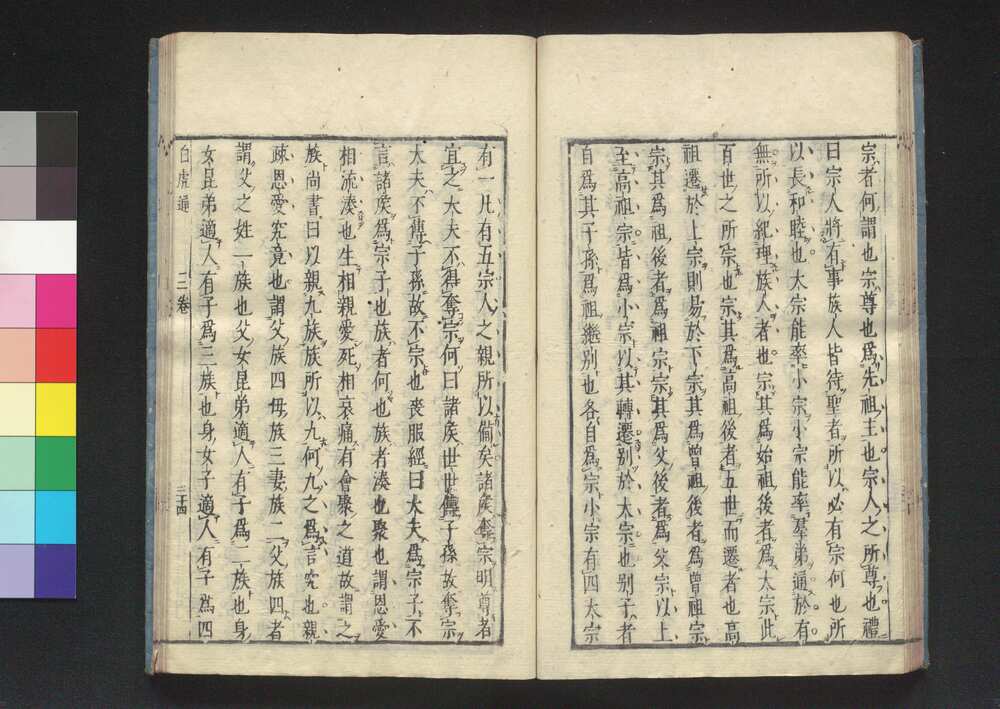 宗者何謂也宗尊也爲先祖主也宗人之所尊也禮
曰宗人將有事族人皆待聖者所以必有宗何也所
以長和睦也大宗能率小宗小宗能率羣弟通於有
無所以紀理族人者也宗其爲始祖後者爲大宗此
百世之所宗也宗其爲高祖後者五世而遷者也高
祖遷於上宗則易於下宗其爲曾祖後者爲曾祖宗
宗其爲祖後者爲祖宗宗其爲父後者爲父宗以上
至高祖宗皆爲小宗以其轉遷別於大宗也别子者
自爲其子孫爲祖繼別也各自爲宗小宗有四大宗
有一凡有五宗人之親所以備矣諸矦奪宗明尊者
宜之大夫不得奪宗何曰諸矦世世傳子孫故奪宗
大夫不傳子孫故不宗也喪服經曰大夫爲宗子不
言諸矦爲宗子也族者何也族者湊也聚也謂恩愛
相流湊也生相親愛死相哀痛有會聚之道故謂之
族尚書曰以親九族族所以九何九之爲言究也親
疎恩愛究竟也謂父族四母族三妻族二父族四者
謂父之姓一族也父女昆弟適人有子爲二族也身
女昆弟適人有子爲三族也身女子適人有子爲四
白虎通
三卷
三十四